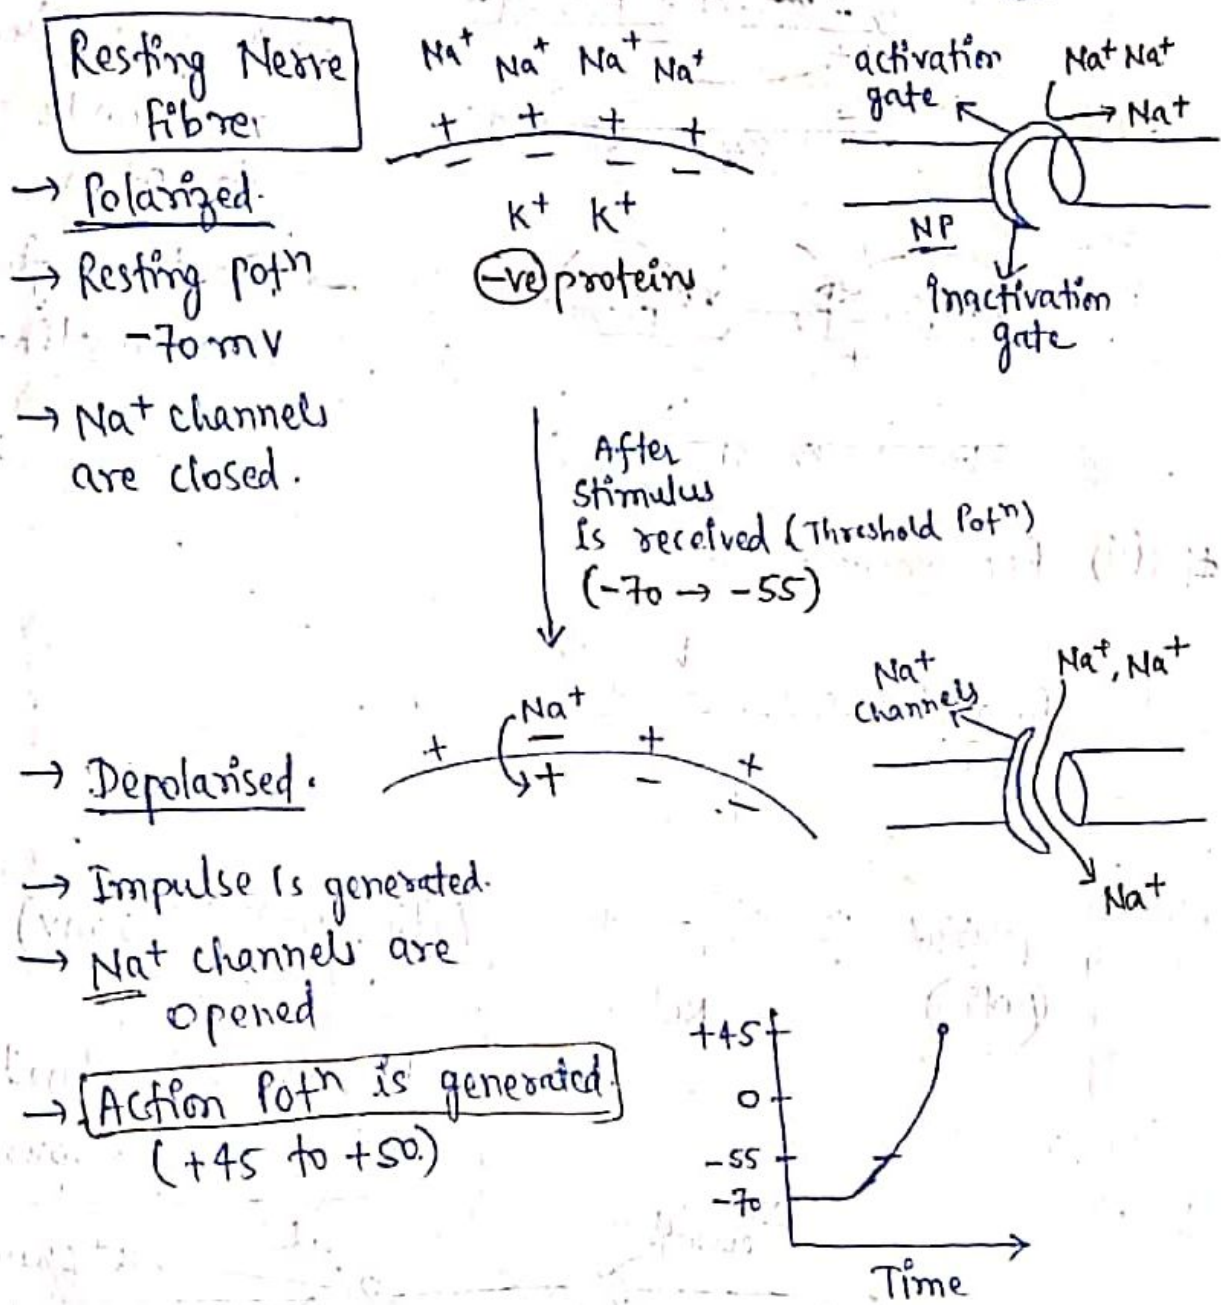 Resting Nerve
fibre
→ Polarized.
→ Resting potⁿ
-70mv
→ Na+ channels
are closed.
Na+ Na+ Na+ Na+
+ + + +
- - - -
K+ K+
-ve protein
activation
gate
Na+ Na+
→ Na+
NP
Inactivation
gate
After
Stimulus
is received (Threshold Potⁿ)
(-70 → -55)
→ Depolarised.
→ Impulse is generated.
→ Na+ channels are
opened
→ Action Potⁿ is generated
(+45 to +50)
Na+
+ - + +
+ - -
Na+
channels
Na+, Na+
Na+
+45
0
-55
-70
Time